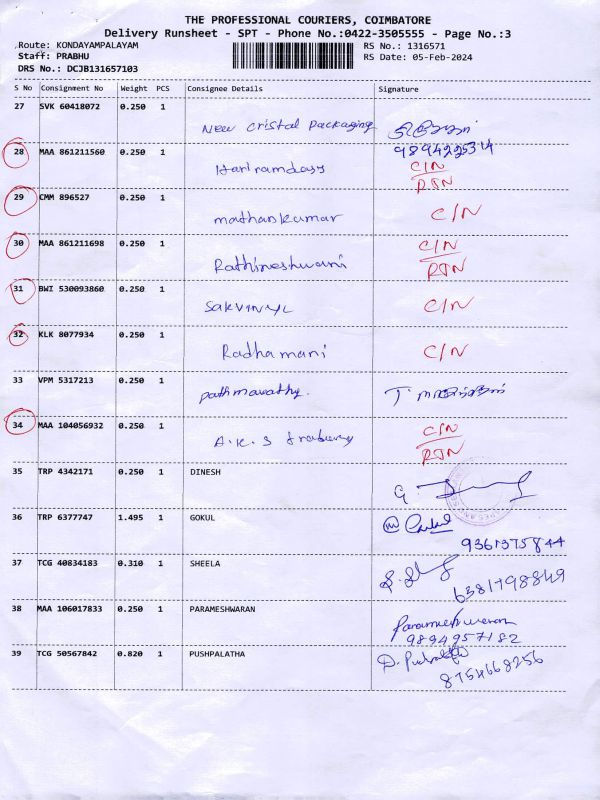 THE PROFESSIONAL COURIERS, COIMBATORE
Delivery Runsheet - SPT - Phone No.:0422-3505555 - Page No.:3
Route: KONDAYAMPALAYAM RS No.: 1316571
Staff: PRABHU RS Date: 05-Feb-2024
DRS No.: DCJB131657103
S No Consignment No Weight PCS Consignee Details Signature
27 SVK 60418072 0.250 1
New cristal packaging
9894225314
28 MAA 861211560 0.250 1 C/N
Hariramdass RTN
29 CMM 896527 0.250 1
mathankumar C/N
30 MAA 861211698 0.250 1 C/N
Rathineshwani RTN
31 BWI 530093860 0.250 1
SAKVINYL C/N
32 KLK 8077934 0.250 1
Radhamani C/N
33 VPM 5317213 0.250 1
pathmavathy.
34 MAA 104056932 0.250 1 C/N
A.K.S RTN
35 TRP 4342171 0.250 1 DINESH
36 TRP 6377747 1.495 1 GOKUL
9361375844
37 TCG 40834183 0.310 1 SHEELA
6381798849
38 MAA 106017833 0.250 1 PARAMESHWARAN
Parameshwaran
9894957182
39 TCG 50567842 0.820 1 PUSHPALATHA
8754668256